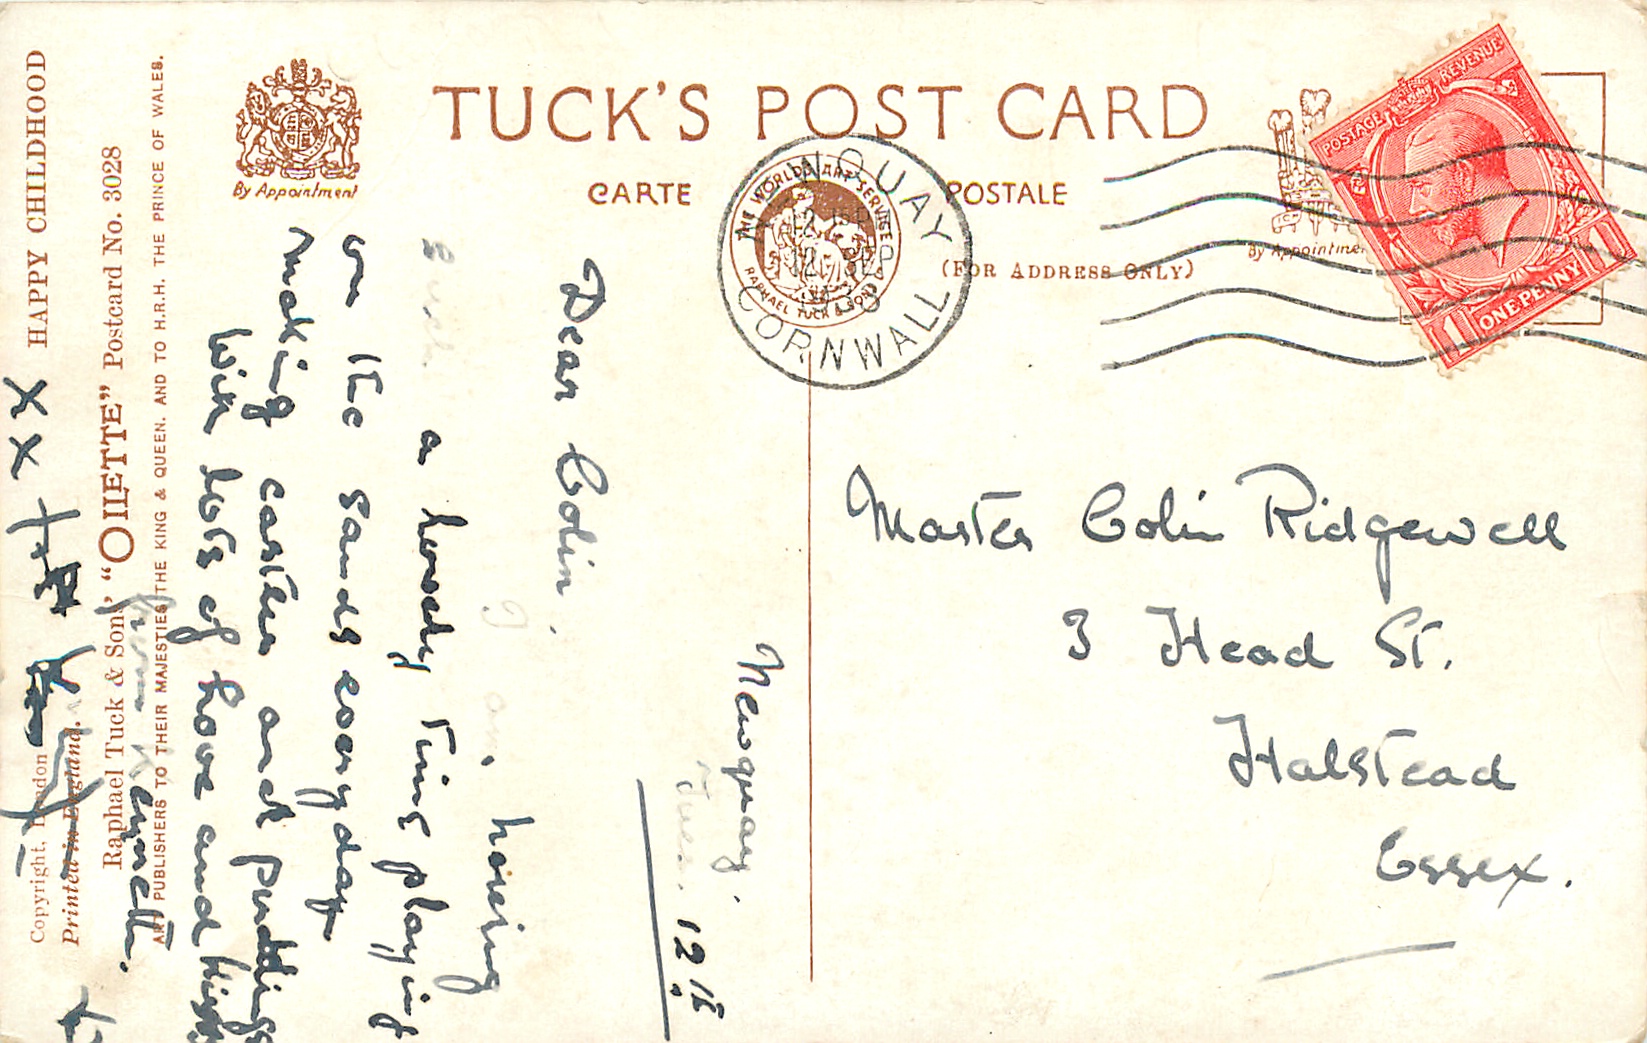 TUCK'S POST CARD
CARTE POSTALE
(FOR ADDRESS ONLY)
By Appointment
By Appointmen
THE WORLD'S ART SERVICE
RAPHAEL TUCK & SONS
NEWQUAY
12 SEP
CORNWALL
POSTAGE REVENUE
1 ONE PENNY 1
Master Colin Ridgewell
3 Head St.
Halstead
Essex.
Newquay.
Tues. 12th
Dear Colin.
I am, having
such a lovely time playing
on the sands every day
making castles and puddings
With lots of love and kisses
from
HAPPY CHILDHOOD
Copyright, London
Printed in England.
Raphael Tuck & Sons' "OILETTE" Postcard No. 3028
ART PUBLISHERS TO THEIR MAJESTIES THE KING & QUEEN. AND TO H.R.H. THE PRINCE OF WALES.
X X